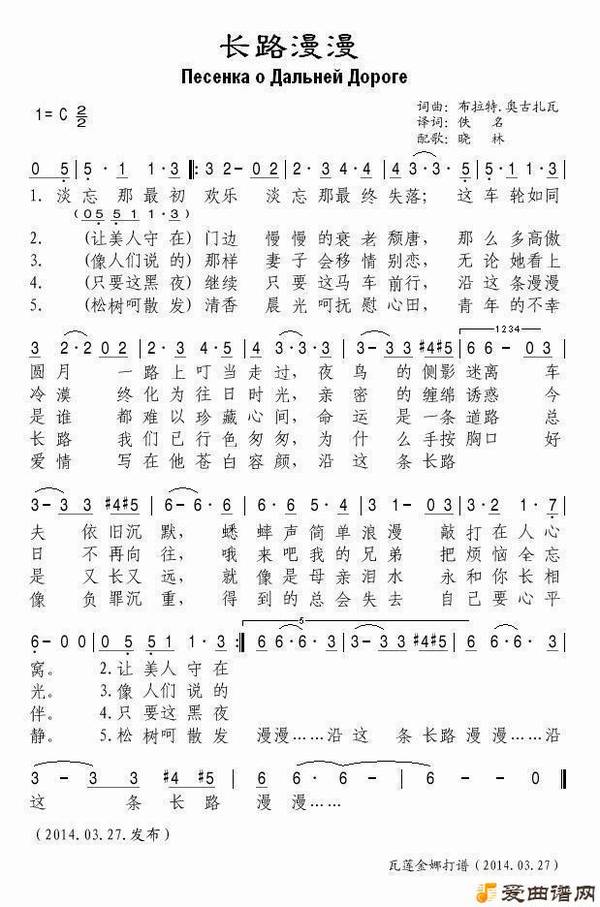 长路漫漫
Песенка о Дальней Дороге
1= C 2/2
词曲：布拉特.奥古扎瓦
译词：佚 名
配歌：晓 林
0 5 | 5·1 1·3 ‖: 3-2·2 | 0 2 2·3 | 4(3·3) 5 | 5·1 1·3 |
1. 淡忘 那最初 欢乐 淡忘那最终失落；这车轮如同
(0 5 5 1 1·3)
2. (让美人守在)门边 慢慢的衰老颓唐，那么多高傲
3. (像人们说的)那样 妻子会移情别恋，无论她看上
4. (只要这黑夜)继续 只要这马车前行，沿这条漫漫
5. (松树呵散发)清香 晨光呵抚慰心田，青年的不幸
1234
圆月 一路上叮当走过，夜鸟的侧影迷离 车
冷漠 终化为往日时光，亲密的缠绵诱惑 今
是谁 都难以珍藏心间，命运是一条道路 总
长路 我们已行色匆匆，为什么手按胸口 好
爱情 写在他苍白容颜，沿这条长路
夫 依旧沉默，蟋蟀声简单浪漫 敲打在人心
日 不再向往，哦来吧我的兄弟 把烦恼全忘
是 又长又远，就像是母亲泪水 永和你长相
像 负罪沉重，得到的总会失去 自己要心平
5
6-0 0 | 0 5 5 1 | 1·3 :‖ 6 6·6·3 | 3- 3 3 #4#5 | 6 6·6·3 |
窝。 2.让美人守在
光。 3.像人们说的
伴。 4.只要这黑夜
静。 5.松树呵散发 漫漫……沿 这条长路漫漫……沿
3 - 3 3 | #4 #5 | 6 6 · 6 - | 6 - - 0 ‖
这 条 长 路 漫 漫……
(2014.03.27.发布)
瓦莲金娜打谱(2014.03.27)
爱曲谱网